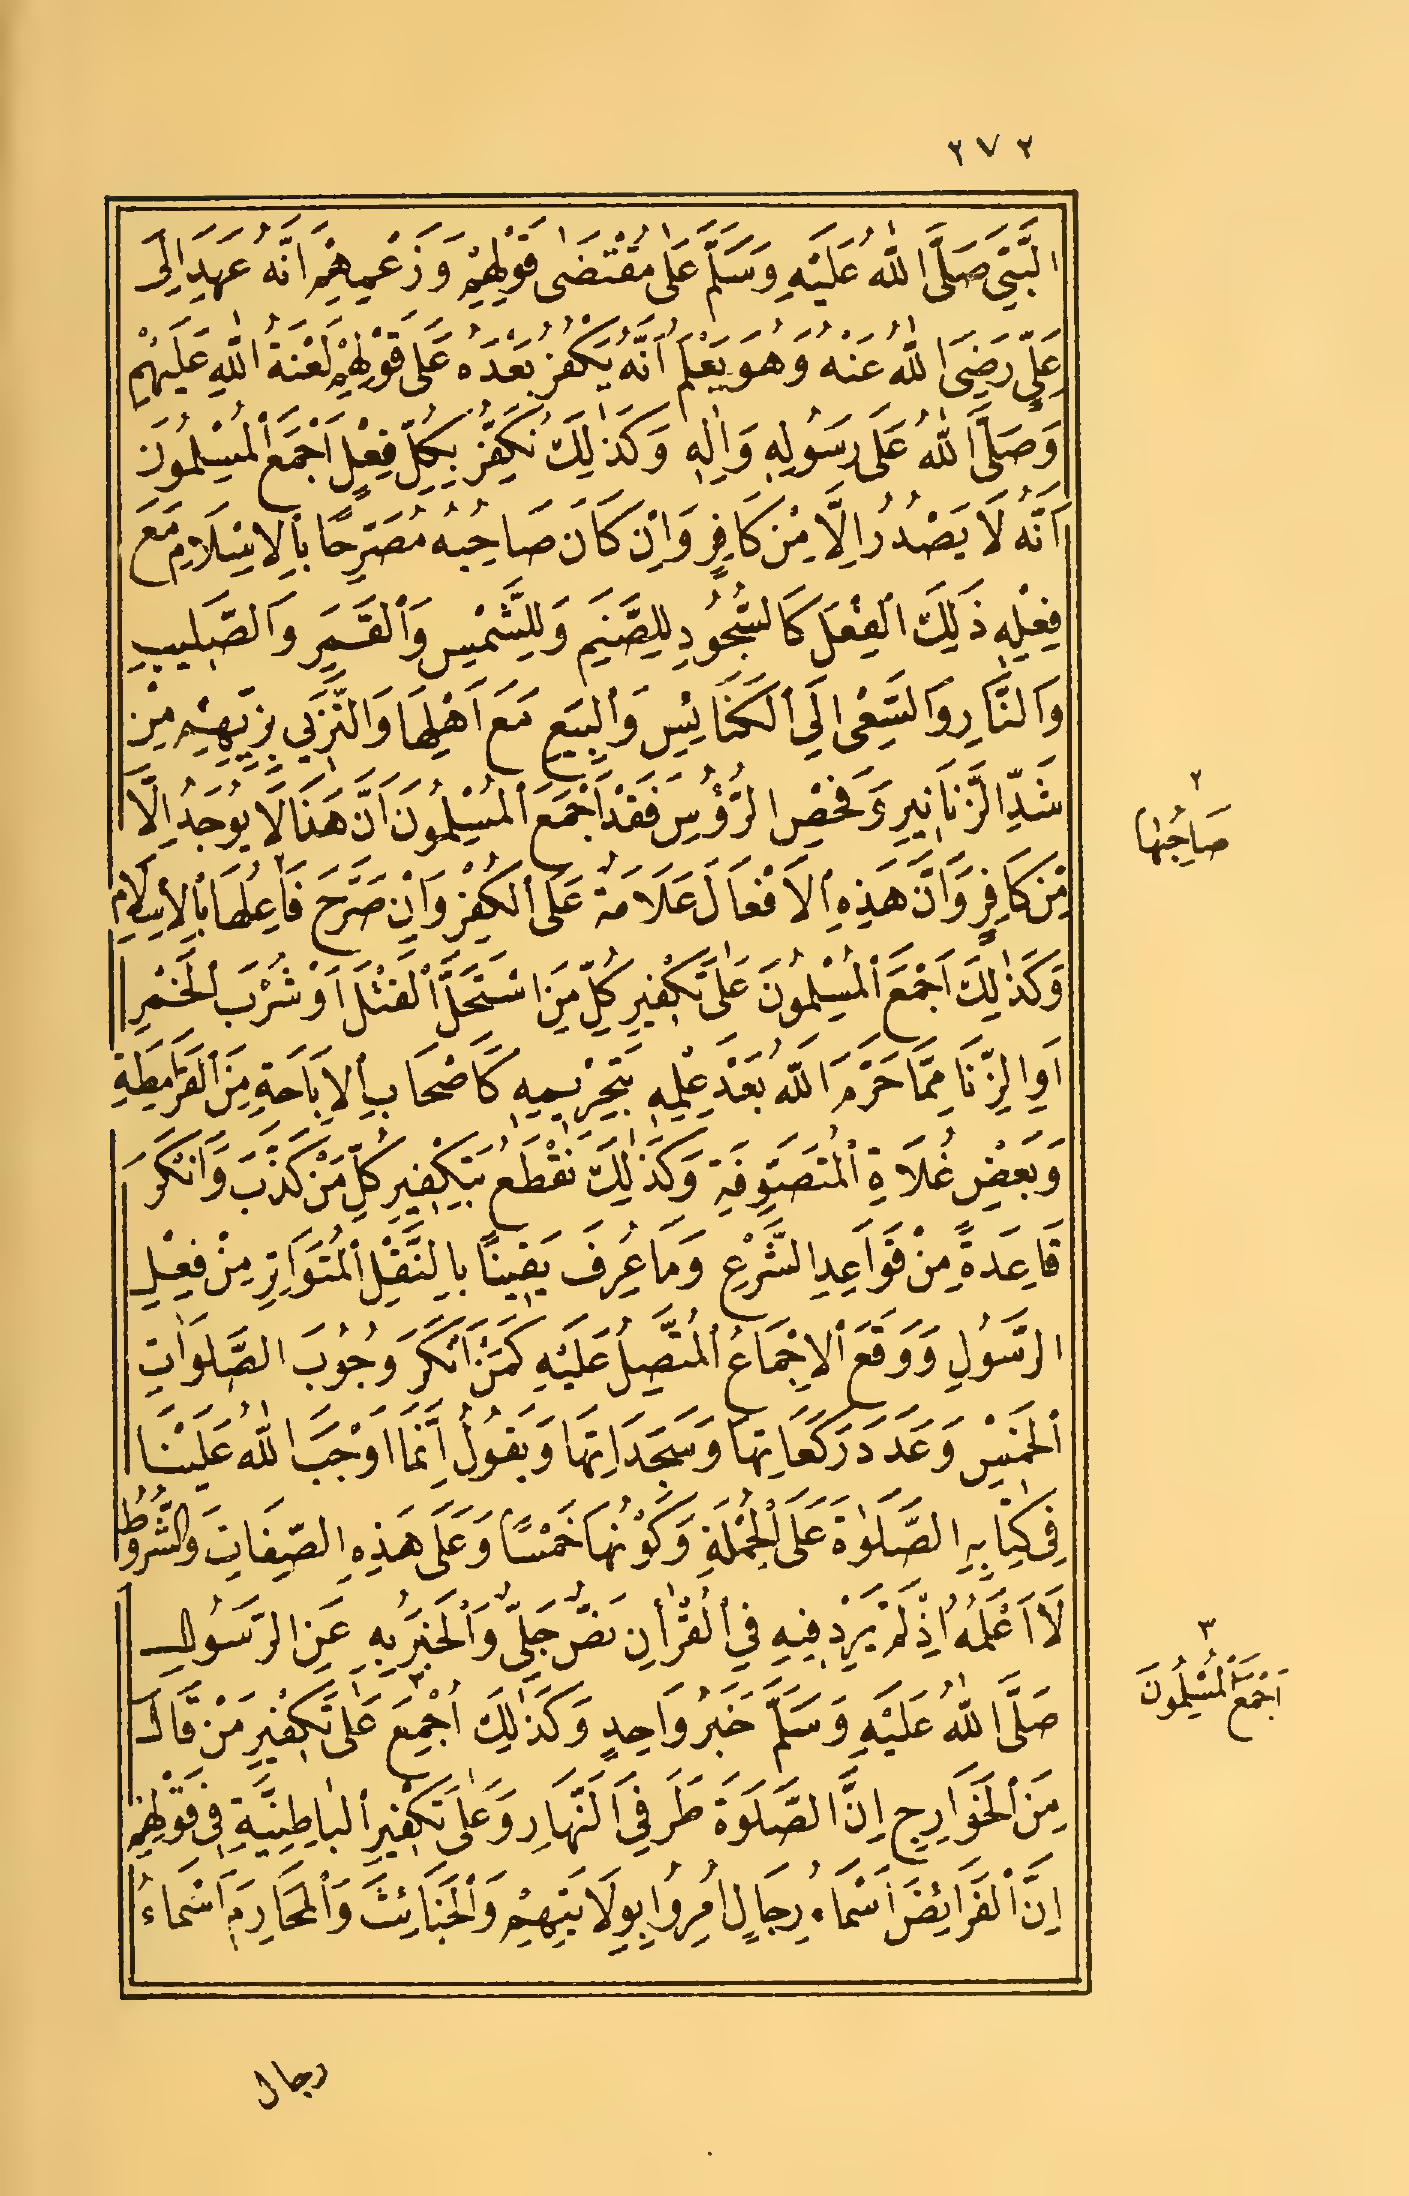 ٢٧٢
النَّبِيِّ صَلَّى اللّٰهُ عَلَيْهِ وَسَلَّمَ عَلٰى مُقْتَضٰى قَوْلِهِمْ وَزَعْمِهِمْ اَنَّهُ عَهِدَ اِلٰى
عَلِيٍّ رَضِيَ اللّٰهُ عَنْهُ وَهُوَ يَعْلَمُ اَنَّهُ يَكْفُرُ بَعْدَهُ عَلٰى قَوْلِهِمْ لَعْنَةُ اللّٰهِ عَلَيْهِمْ
وَصَلَّى اللّٰهُ عَلٰى رَسُولِهِ وَاٰلِهِ وَكَذٰلِكَ نُكَفِّرُ بِكُلِّ فِعْلٍ اَجْمَعَ الْمُسْلِمُونَ
اَنَّهُ لَا يَصْدُرُ اِلَّا مِنْ كَافِرٍ وَاِنْ كَانَ صَاحِبُهُ مُصَرِّحًا بِالْاِسْلَامِ مَعَ
فِعْلِهِ ذٰلِكَ الْفِعْلَ كَالسُّجُودِ لِلصَّنَمِ وَلِلشَّمْسِ وَالْقَمَرِ وَالصَّلِيبِ
وَالنَّارِ وَالسَّعْىِ اِلَى الْكَنَائِسِ وَالْبِيَعِ مَعَ اَهْلِهَا وَالتَّزَيِّي بِزِيِّهِمْ مِنْ
شَدِّ الزَّنَانِيرِ وَفَحْصِ الرُّؤُسِ فَقَدْ اَجْمَعَ الْمُسْلِمُونَ اَنَّ هَذَا لَا يُوجَدُ اِلَّا
مِنْ كَافِرٍ وَاَنَّ هَذِهِ الْاَفْعَالَ عَلَامَةٌ عَلَى الْكُفْرِ وَاِنْ صَرَّحَ فَاعِلُهَا بِالْاِسْلَامِ
وَكَذٰلِكَ اَجْمَعَ الْمُسْلِمُونَ عَلٰى تَكْفِيرِ كُلِّ مَنِ اسْتَحَلَّ الْقَتْلَ اَوْ شُرْبَ الْخَمْرِ
اَوِ الزِّنَا مِمَّا حَرَّمَ اللّٰهُ بَعْدَ عِلْمِهِ بِتَحْرِيمِهِ كَاَصْحَابِ الْاِبَاحَةِ مِنَ الْقَرَامِطَةِ
وَبَعْضِ غُلَاةِ الْمُتَصَوِّفَةِ وَكَذٰلِكَ نَقْطَعُ بِتَكْفِيرِ كُلِّ مَنْ كَذَّبَ وَاَنْكَرَ
قَاعِدَةً مِنْ قَوَاعِدِ الشَّرْعِ وَمَا عُرِفَ يَقِينًا بِالنَّقْلِ الْمُتَوَاتِرِ مِنْ فِعْلِ
الرَّسُولِ وَوَقَعَ الْاِجْمَاعُ الْمُتَّصِلُ عَلَيْهِ كَمَنْ اَنْكَرَ وُجُوبَ الصَّلَوَاتِ
الْخَمْسِ وَعَدَدَ رَكَعَاتِهَا وَسَجَدَاتِهَا وَيَقُولُ اِنَّمَا اَوْجَبَ اللّٰهُ عَلَيْنَا
فِي كِتَابِهِ الصَّلٰوةَ عَلَى الْجُمْلَةِ وَكَوْنُهَا خَمْسًا وَعَلَى هَذِهِ الصِّفَاتِ وَالشُّرُوطِ
لَا اَعْلَمُهُ اِذْ لَمْ يَرِدْ فِيهِ فِي الْقُرْاٰنِ نَصٌّ جَلِيٌّ وَالْخَبَرُ بِهِ عَنِ الرَّسُولِ
صَلَّى اللّٰهُ عَلَيْهِ وَسَلَّمَ خَبَرُ وَاحِدٍ وَكَذٰلِكَ اُجْمِعَ ٣ عَلٰى تَكْفِيرِ مَنْ قَالَ
مِنَ الْخَوَارِجِ اِنَّ الصَّلَوةَ طَرَفَيِ النَّهَارِ وَعَلٰى تَكْفِيرِ الْبَاطِنِيَّةِ فِي قَوْلِهِمْ
اِنَّ الْفَرَائِضَ اَسْمَاءُ رِجَالٍ اُمِرُوا بِوِلَايَتِهِمْ وَالْخَبَائِثَ وَالْمَحَارِمَ اَسْمَاءُ
٢
صَاحِبُهَا
٣
اَجْمَعَ الْمُسْلِمُونَ
رجال